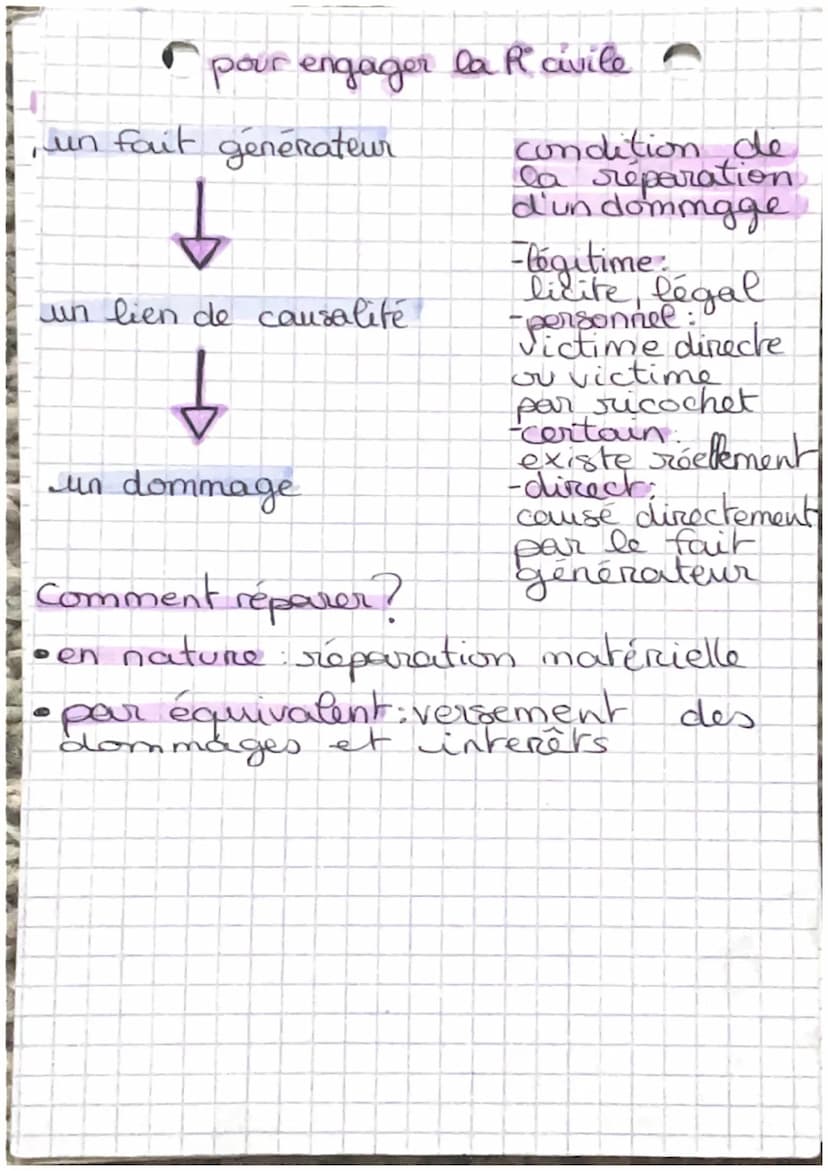 pour engager la R° civile
un fait générateur
un lien de causalité
un dommage
condition de
la réparation
d'un dommage
-légitime:
licite, légal
-personnel:
victime directe
ou victime
par ricochet
-certain:
existe réellement
-direct:
causé directement
par le fait
générateur
Comment réparer?
• en nature: réparation matérielle
• par équivalent: versement des
dommages et interêts